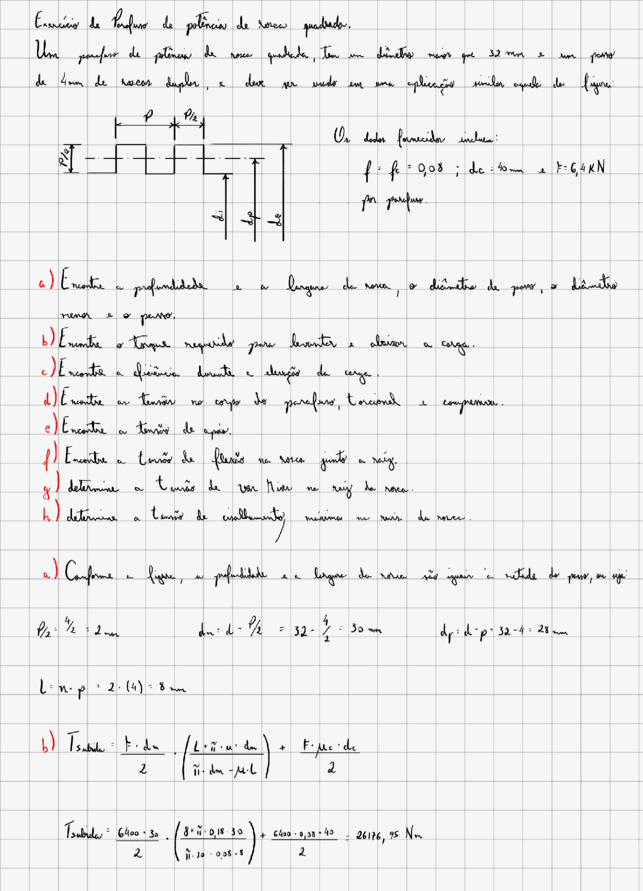 Exercício de Parafuso de potência de rosca quadrada.
Um parafuso de potência de rosca quadrada, tem um diâmetro maior que 32 mm e um passo
de 4mm de roscas duplas, e deve ser usado em uma aplicação similar aquela da figura:
P P/2
P/2
Os dados fornecidos incluem:
f = fc = 0,08 ; dc = 40 mm e F = 6,4 KN
por parafuso.
di dp de
a) Encontre a profundidade e a largura da rosca, o diâmetro de passo, o diâmetro
menor e o passo.
b) Encontre o torque requerido para levantar e abaixar a carga.
c) Encontre a eficiência durante a elevação da carga.
d) Encontre as tensões no corpo do parafuso, torcional e compressiva.
e) Encontre a tensão de apoio.
f) Encontre a tensão de flexão na rosca junto a raiz.
g) determine a tensão de von Mises na raiz da rosca.
h) determine a tensão de cisalhamento, máxima na raiz da rosca.
a) Conforme a figura, a profundidade e a largura da rosca são iguais à metade do passo, ou seja
P/2 = 4/2 = 2 mm dm = d - P/2 = 32 - 4/2 = 30 mm dr = d - p = 32 - 4 = 28 mm
L = n · p = 2 · (4) = 8 mm
b) Tsubida = F · dm / 2 · ( L + π · u · dm / π · dm - μ · L ) + F · μc · dc / 2
Tsubida = 6400 · 30 / 2 · ( 8 + π · 0,18 · 30 / π · 30 - 0,08 · 8 ) + 6400 · 0,08 · 40 / 2 = 26176,95 Nm